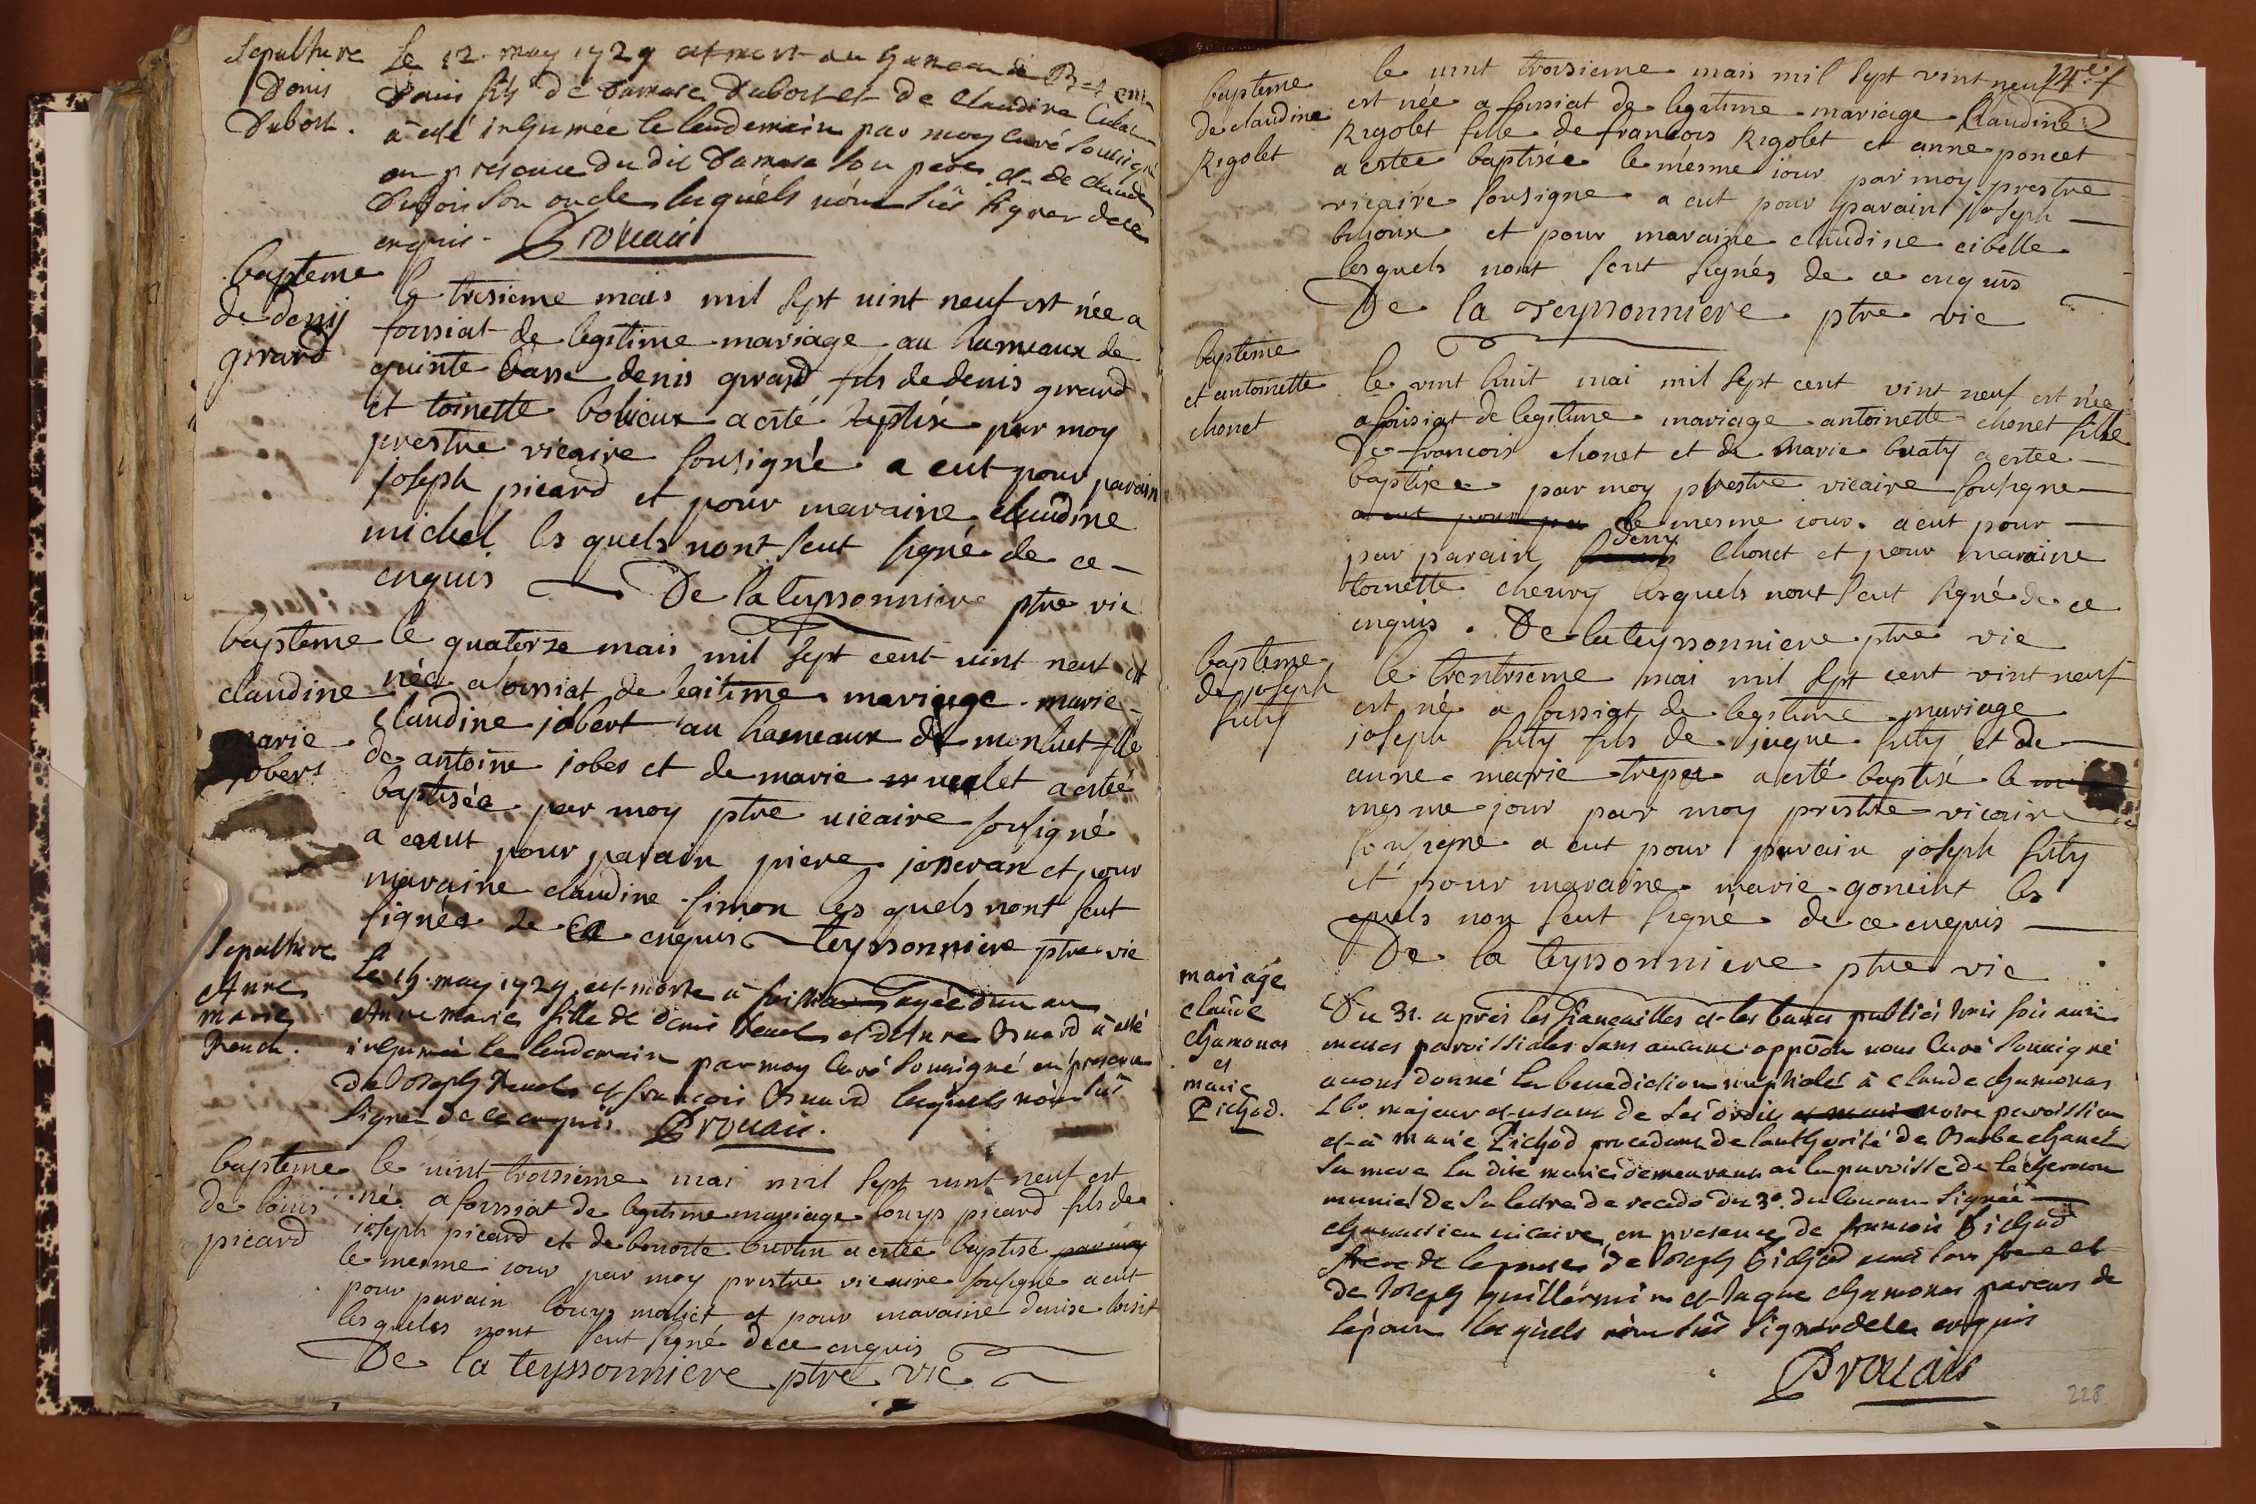 Sepulture
Denis
Dubost.
Le 12. may 1729 est mort au hameau de
Denis fils de Damase Dubost et de Claudine
à esté inhumée le lendemain par moy curé soussigné
en presence du dit Damase son pere et de claude
Dubois son oncle lesquels n'ont sus signer de ce
enquis. Drouais
bapteme
de denij
girard
le tresieme mais mil sept uint neuf est née a
foissiat de legitime mariage au hameaux de
quinte basse denis girard fils de denis girard
et toinette boliaux a esté baptisé par moy
prestre vicaire sousigné a eut pour parain
joseph picard et pour maraine claudine
michel les quels nont seut signé de ce
enquis De la teyssonniere ptre vic
bapteme
claudine
marie
jobert
le quatorze mais mil sept cent uint neuf est
née a foissiat de legitime mariage marie
claudine jobert au hameaux de monluet fille
de antoine jober et de marie uulet a estée
baptisée par moy ptre uicaire sousigné
a eut pour parain piere josseran et pour
maraine claudine simon les quels nont seut
signée de ce enquis teyssonniere ptre vic
Sepulture
Anne
marie
Renud.
Le 15. may 1729 est morte à foissiat agée d'un an
Anne marie fille de denis et d'Anne Buard à esté
inhumée le lendemain par moy Curé soussigné en presence
de Joseph et françois Buard lesquels n'ont sus
signer de ce enquis Drouais.
bapteme
de louis
picard
le uint troisieme mai mil sept uint neuf est
né a foissiat de legitime mariage louys picard fils de
joseph picard et de benoite burtin a estée baptisé par moy
le mesme iour par moy prestre vicaire sousigné a eut
pour parain louys moliet et pour maraine denise loisit
lesqueles nont seut signé de ce enquis
De la teyssonniere ptre vic
bapteme
de claudine
Rigolet
le uint troisieme mais mil sept vint neuf
est née a foissiat de legitime mariage claudine
Rigolet fille de francois Rigolet et anne poncet
a estee baptisée le mesme iour par moy prestre
vicaire sousigne a eut pour parain joseph
bijoux et pour maraine claudine cibelle
lesquels nont seut signés de ce enquis
De la Teyssonniere ptre vic
bapteme
et antoinette
chonet
le vint huit mai mil sept cent vint neuf est née
a foissiat de legitime mariage antoinette chonet fille
de francois chonet et de marie buaty a estee
baptisée par moy prestre vicaire sousigne
a eut pour pa le mesme iour. a eut pour
par parain deny chonet et pour maraine
toinette cheury lesquels nont seut signé de ce
enquis. De la teyssonniere ptre vic
bapteme
de joseph
futy
le trentrieme mai mil sept cent vint neuf
est né a foissiat de legitime mariage
joseph futy fils de jaque futy et de
anne marie treper a esté baptisé le
mesme jour par moy prestre vicaire
sousigne a eut pour parain joseph futy
et pour maraine marie goneint les
quels non seut signé de ce enquis
De la teyssonniere ptre vic
mariage
claude
chamonas
et
marie
Pichod.
Du 31. après les fiançailles et les bans publiés trois fois aux
messes paroissiales sans aucune oppôon nous Curé soussigné
avons donné la benediction nuptiale à claude chamonas
majeur et usant de ses droits notre paroissien
et à marie Pichod procedant de lauthorité de Barbe chanel
sa mere la dite marie demeurant en la paroisse de lécheroux
munie de sa lettre de recedo du 3e. du courant signée
vicaire, en presence de françois Pichod
frere de lepouse de Joseph Pichod aussi son frere et
de Joseph guillermin et Jaque chamonas parens de
lépoux lesquels n'ont sus signer de ce enquis
Drouais
228